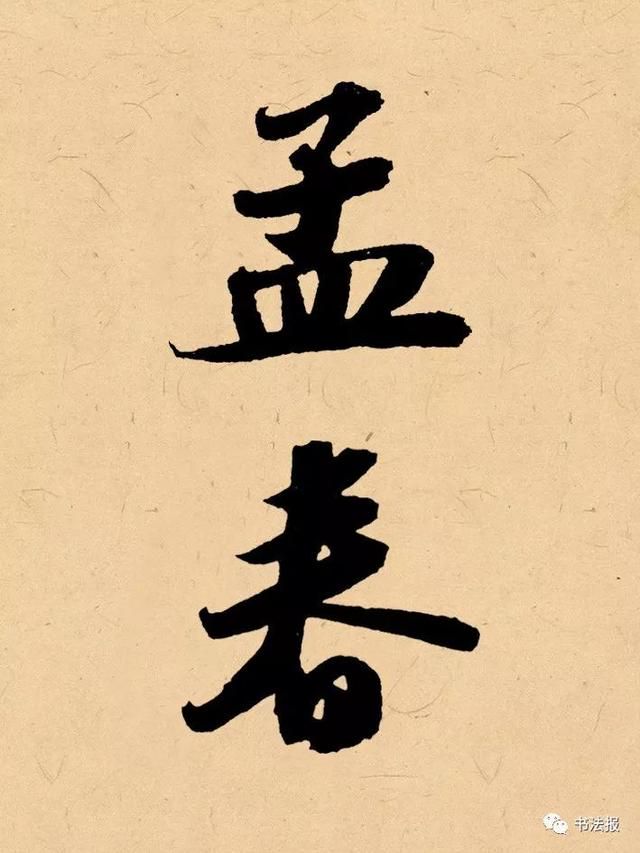 孟
春
书法报